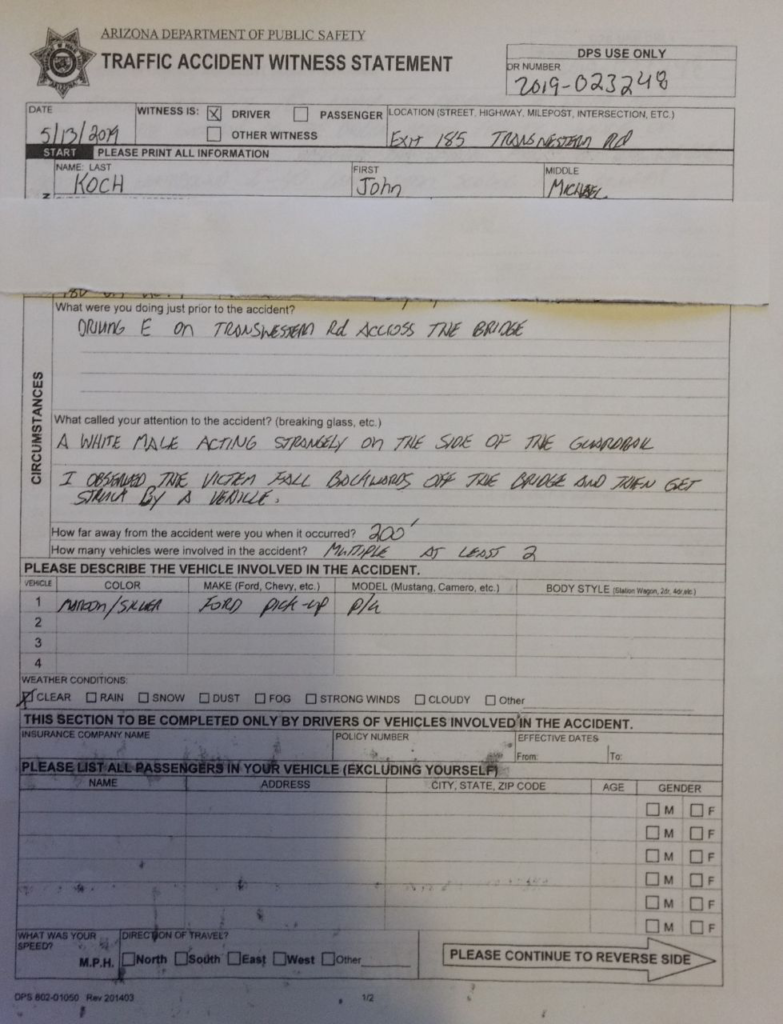 ARIZONA DEPARTMENT OF PUBLIC SAFETY
TRAFFIC ACCIDENT WITNESS STATEMENT
DPS USE ONLY
DR NUMBER
2019-023248
DATE
5/13/2019
WITNESS IS: DRIVER PASSENGER
OTHER WITNESS
LOCATION (STREET, HIGHWAY, MILEPOST, INTERSECTION, ETC.)
EXIT 185 TRANSWESTERN RD
START PLEASE PRINT ALL INFORMATION
NAME: LAST FIRST MIDDLE
KOCH John MICHAEL
CIRCUMSTANCES
What were you doing just prior to the accident?
DRIVING E on TRANSWESTERN Rd ACCROSS THE BRIDGE
What called your attention to the accident? (breaking glass, etc.)
A WHITE MALE ACTING STRANGELY ON THE SIDE OF THE GUARDRAIL
I OBSERVED THE VICTEM FALL BACKWARDS OFF THE BRIDGE AND THEN GET
STRUCK BY A VEHICLE.
How far away from the accident were you when it occurred? 200'
How many vehicles were involved in the accident? MULTIPLE AT LEAST 2
PLEASE DESCRIBE THE VEHICLE INVOLVED IN THE ACCIDENT.
VEHICLE COLOR MAKE (Ford, Chevy, etc.) MODEL (Mustang, Camero, etc.) BODY STYLE (Station Wagon, 2dr, 4dr, etc.)
1 MAROON/SILVER FORD PICK-UP P/U
2
3
4
WEATHER CONDITIONS:
CLEAR RAIN SNOW DUST FOG STRONG WINDS CLOUDY Other
THIS SECTION TO BE COMPLETED ONLY BY DRIVERS OF VEHICLES INVOLVED IN THE ACCIDENT.
INSURANCE COMPANY NAME POLICY NUMBER EFFECTIVE DATES
From: To:
PLEASE LIST ALL PASSENGERS IN YOUR VEHICLE (EXCLUDING YOURSELF)
NAME ADDRESS CITY, STATE, ZIP CODE AGE GENDER
M F
M F
M F
M F
M F
M F
WHAT WAS YOUR SPEED?
M.P.H.
DIRECTION OF TRAVEL?
North South East West Other
PLEASE CONTINUE TO REVERSE SIDE
DPS 802-01050 Rev 201403 1/2